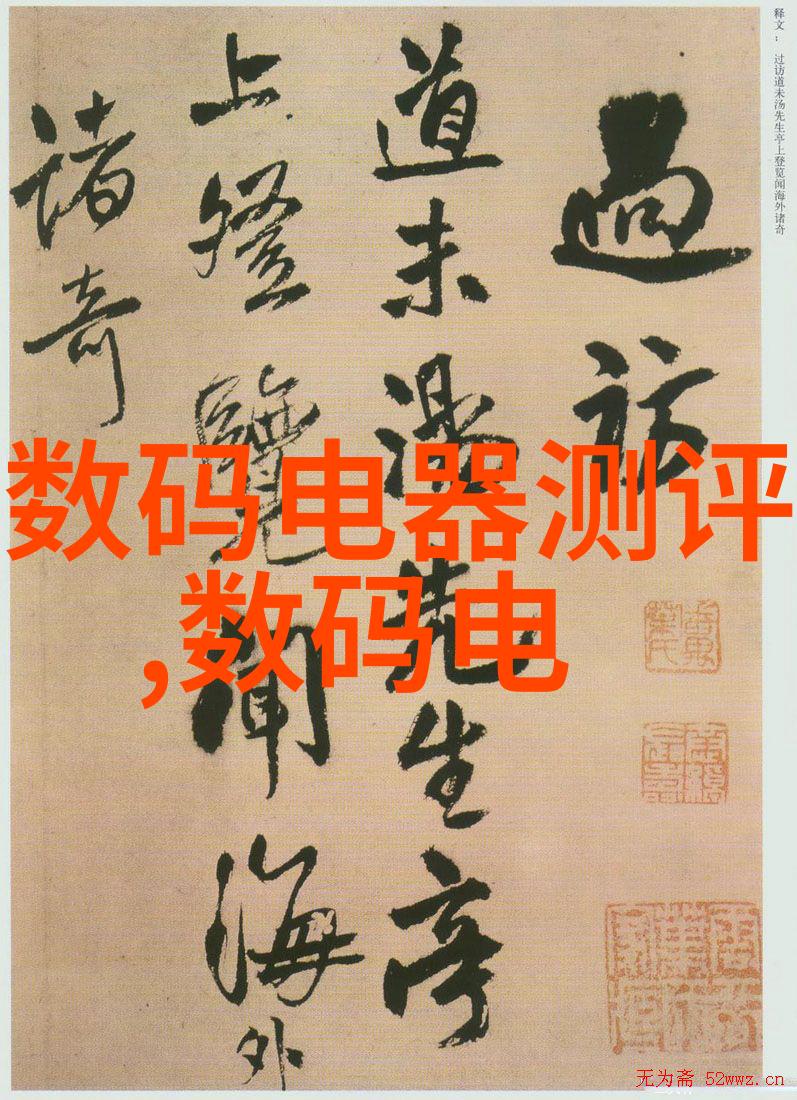 释文： 过访道未汤先生亭上登览闻海外诸奇
過訪
道未湯先生亭
上登覽聞海外
諸奇
数码电器测评
,数码电
无为斋 52wwz.cn